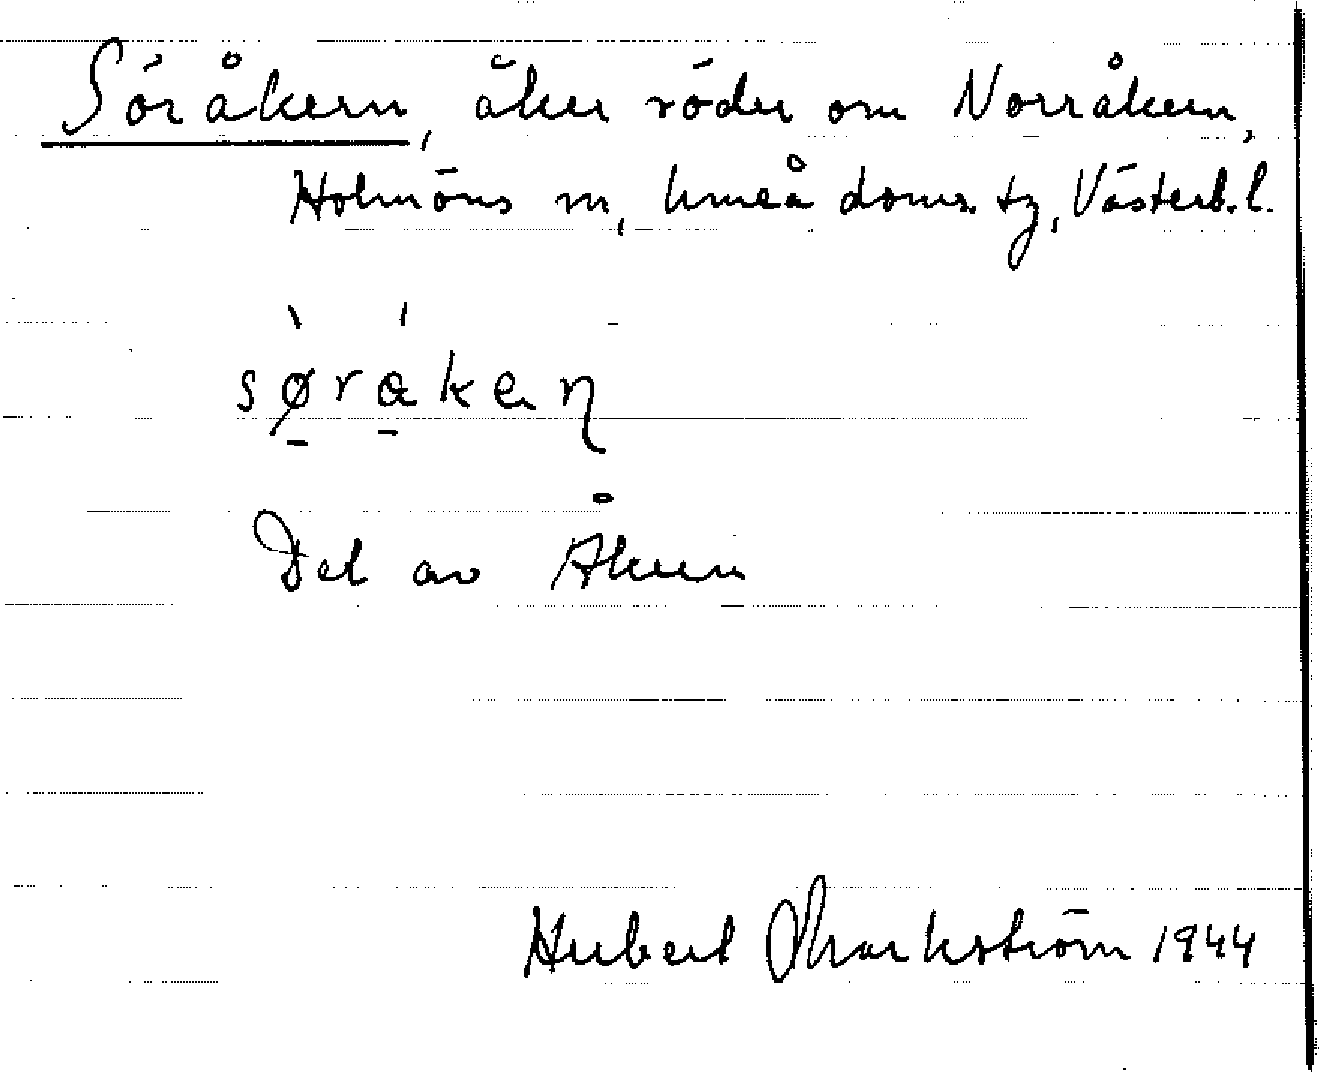 Söråkern, åker söder om Norråkern,
Holmöns sn, Umeå doms. tg, Västerb. l.
sø̀råkeɳ
Del av Åkern
Hubert Markström 1944